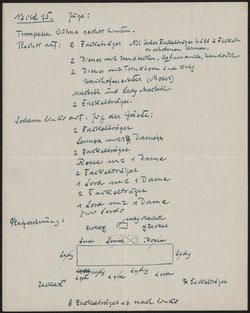 Bild 15. Züge:
Trompeten Bühne rechts hinten.
Rechts auf: 2 Fackelträger NB: Jeder Fackelträger hält 2 Fackeln
in erhobenen Armen.
2 Diener mit
2 Diener mit Trinkhorn und Krug
Haushofmeister (Moser)
Macbeth und Lady Macbeth
2 Fackelträger.
Sodann links auf: Zug der Gäste:
2 Fackelträger
Lennox mit 1 Dame
2 Fackelträger
Rosse mit 1 Dame
2 Fackelträger
1 Lord mit 1 Dame
2 Fackelträger
1 Lord mit 1 Dame
Lords
Platzordnung:
Lady Macbeth
Macbeth
Lord Lennox Rosse
Lady Lady
Lady Lady
Lord Lord
Fackelträger
8 Fackelträger ab nach links